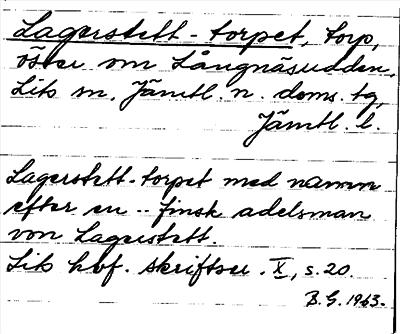 Lagerstett-torpet, torp,
öster om Långnäsudden,
Lits sn, Jämtl. n. doms. tg,
Jämtl. l.
Lagerstett-torpet med namn
efter en .. finsk adelsman
von Lagerstett.
Lits hbf. skriftser. X, s. 20.
B.G. 1963.